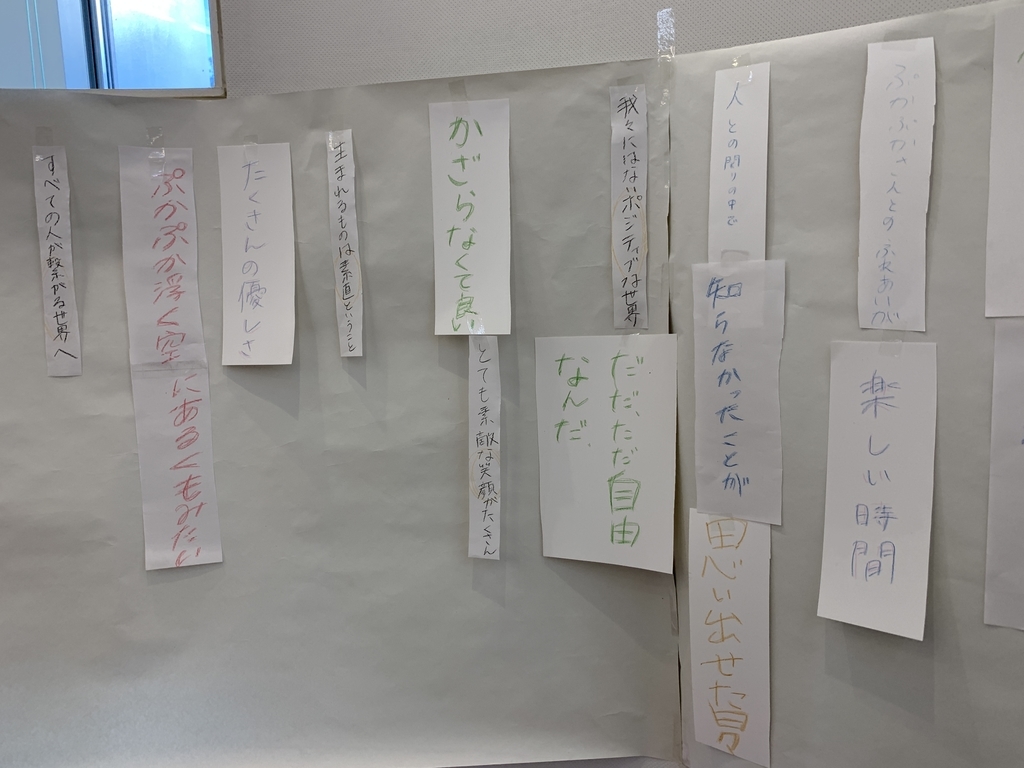 ぷかぷかさんとの ふれあいが
楽しい
時間
人との関りの中で
知らなかったことが
思い出せた
我々にはないポジティブな世界
ただ、ただ自由
なんだ、
かざらなくて良い
とても素敵な笑顔がたくさん
生まれるものは素直ということ
たくさんの優しさ
ぷかぷか浮く空にあるくもみたい
すべての人が繋がる世界へ